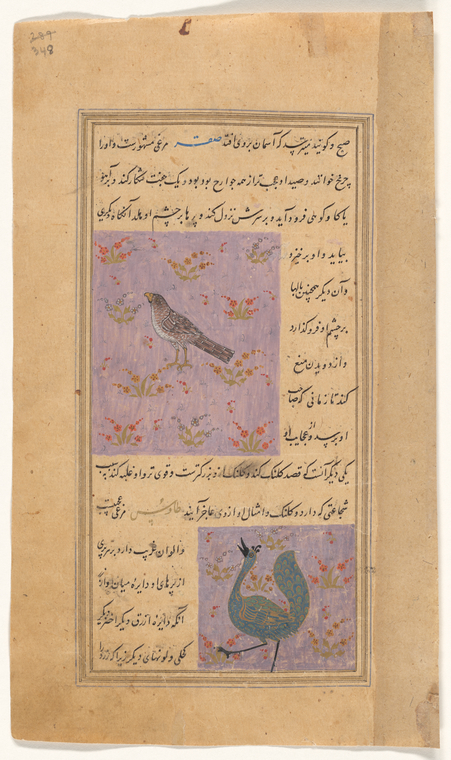 289
348
صبح و گویند میترسد که آسمان بر وی افتد صقر مرغی مشهورست و او را
چرخ خوانند و صید او عجب‌تر از همه جوارح بود و یک جفت شکار کند و بر آهو
یا گاو کوهی فرود آید و بر سرش نزول کند و پرها بر چشم او آنگاه دیگری
بیاید و او برخیزد
و آن دیگر همچنین بالها
بر چشم او فرو گذارد
و از دویدن منع
کند تا زمانی که صاحب
او برسد و از عجایب او
یکی دیگر آنست که قصد کلنگ کند و کلنگ ازو بزرگترست و قوی‌تر و او غلبه کند به سبب
شجاعتی که دارد و کلنگ و امثال او از وی عاجز آیند طاوس مرغی عجیب
و الوان غریب دارد بر هر پری
از پرهای او دایره میان او ازرق
آنگه دایره ازرق و دیگر اخضر دیگر
کحلی و لونهای دیگر زیرا که زرد